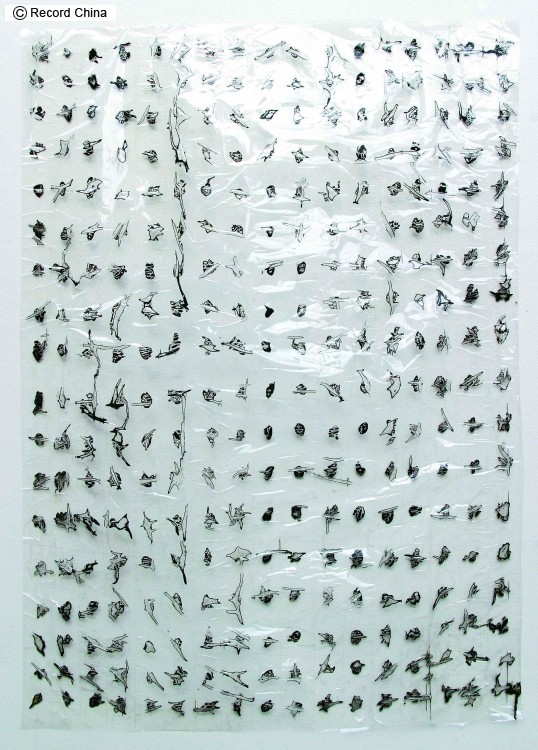 © Record China